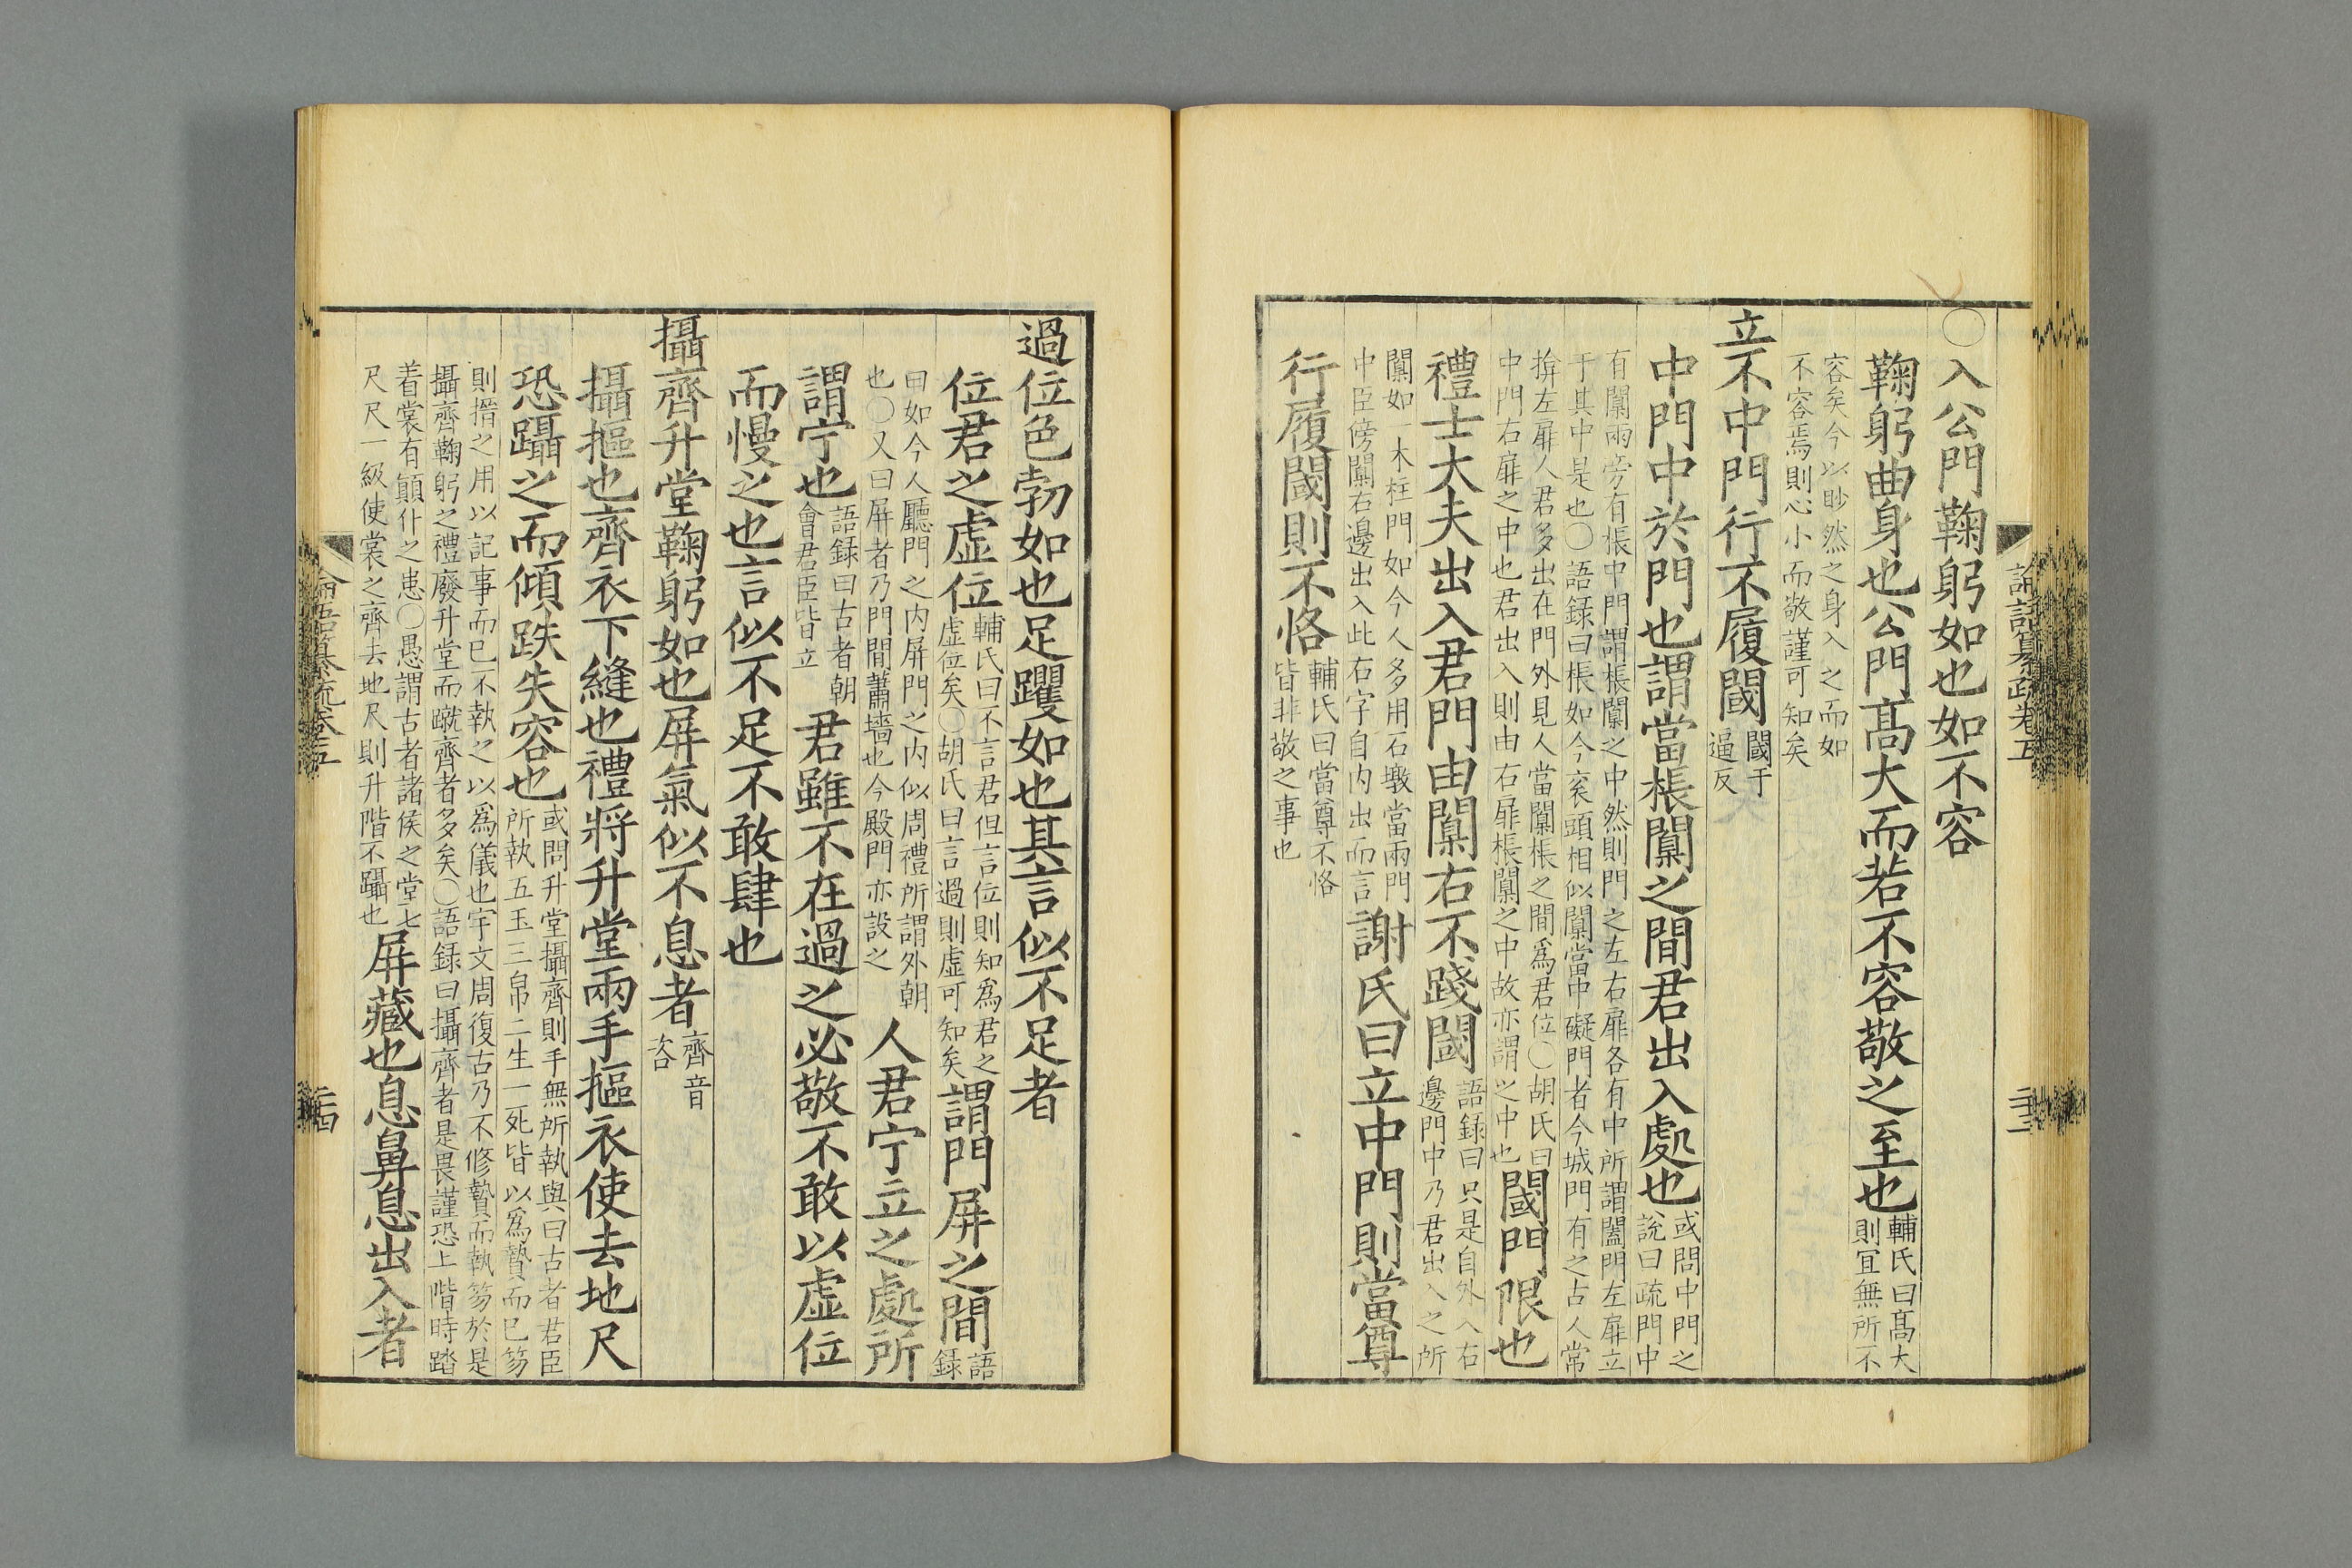 論語纂疏卷五
二十三
○入公門鞠躬如也如不容
鞠躬曲身也公門髙大而若不容敬之至也
輔氏曰髙大
則冝無所不
容矣今以眇然之身入之而如
不容焉則心小而敬謹可知矣
立不中門行不履閾
閾于
逼反
中門中於門也謂當棖闑之間君出入處也
或問中門之
説曰疏門中
有闑兩旁有棖中門謂棖闑之中然則門之左右扉各有中所謂闔門左扉立
于其中是也○語録曰棖如今衮頭相似闑當中礙門者今城門有之占人常
揜左扉人君多出在門外見人當闑棖之間爲君位○胡氏曰
中門右扉之中也君出入則由右扉棖闑之中故亦謂之中也
閾門限也
禮士大夫出入君門由闑右不踐閾
語録曰只是自外入右
邊門中乃君出入之所
闑如一木柱門如今人多用石墩當兩門
中臣傍闑右邊出入此右字自内出而言
謝氏曰立中門則當尊
行履閾則不恪
輔氏曰當尊不恪
皆非敬之事也
過位色勃如也足躩如也其言似不足者
位君之虚位
輔氏曰不言君但言位則知爲君之
虚位矣○胡氏曰言過則虚可知矣
謂門屏之間
語
録
曰如今人廳門之内屏門之内似周禮所謂外朝
也○又曰屏者乃門間蕭墻也今殿門亦設之
人君宁立之處所
謂宁也
語録曰古者朝
會君臣皆立
君雖不在過之必敬不敢以虚位
而慢之也言似不足不敢肆也
攝齊升堂鞠躬如也屏氣似不息者
齊音
咨
攝摳也齊衣下縫也禮將升堂兩手摳衣使去地尺
恐躡之而傾跌失容也
或問升堂攝齊則手無所執與曰古者君臣
所執五玉三帛二生一死皆以爲贄而已笏
則搢之用以記事而已不執之以爲儀也宇文周復古乃不修贄而執笏於是
攝齊鞠躬之禮廢升堂而蹴齊者多矣○語録曰攝齊者是畏謹恐上階時踏
着裳有顚仆之患○愚謂古者諸侯之堂七
尺尺一級使裳之齊去地尺則升階不躡也
屏藏也息鼻息出入者
論語纂疏卷五
二十四